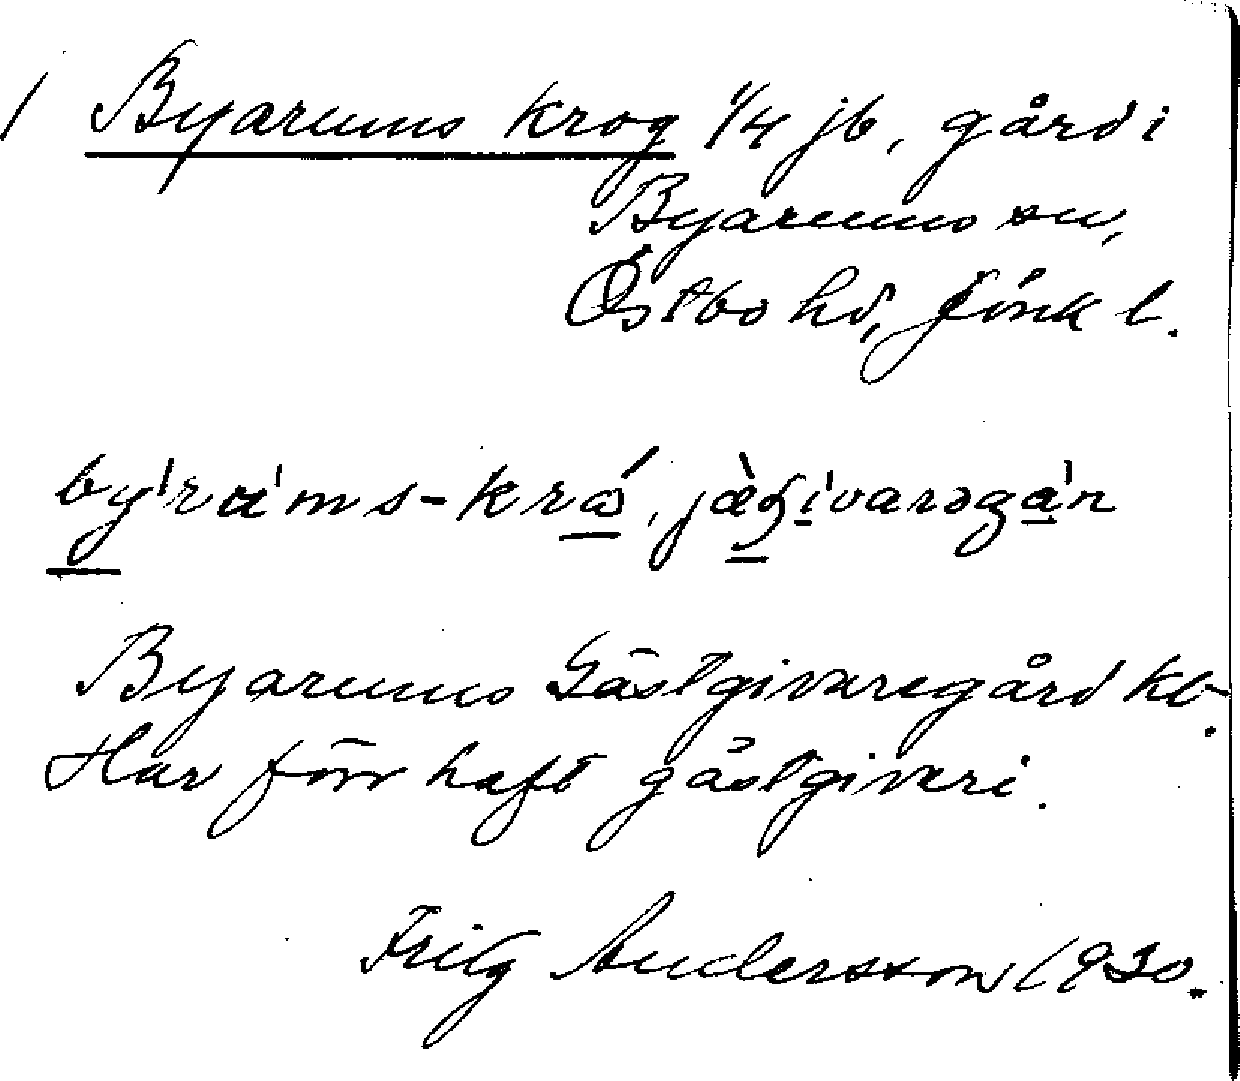 / Byarums krog 1/4 jb, gård i
Byarums sn,
Östbo hd, Jönk l.
by'ra'ms-krɷ́, jæ̀ʂivarəga'ɳ
Byarums Gästgivaregård kb.
Har förr haft gästgiveri.
Fritz Andersson 1930.